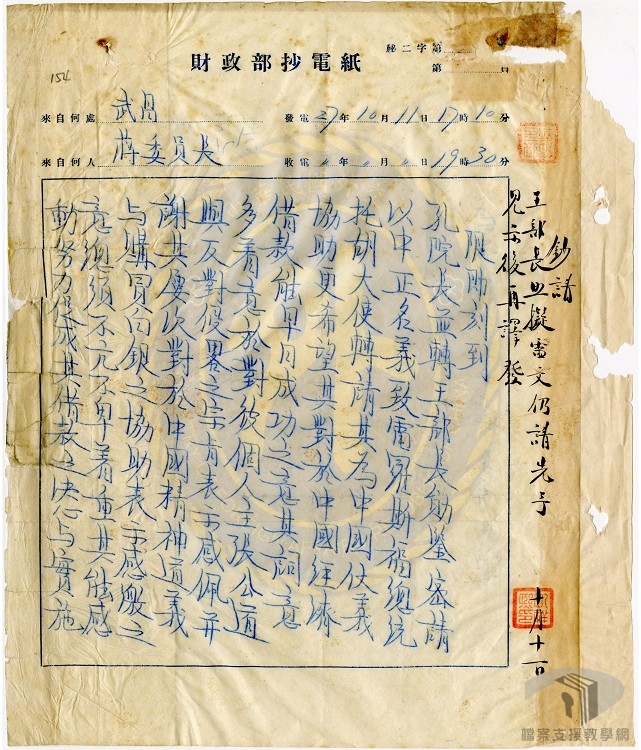 秘二字第
第 頁
財政部抄電紙
154
來自何處 武昌
發電 27年10月11日17時10分
來自何人 蔣委員長
收電 〃年〃月〃日19時30分
限即刻到
孔院長並轉王部長勛鑒密請
以中正名義致電羅斯福總統
托胡大使轉請其為中國仗義
協助更希望其對於中國經濟
借款能早日成功之意其詞意
多着意於對彼個人主張公道
與反對侵略之宗旨表示感佩并
謝其屢次對於中國精神道義
与購買白銀之協助表示感激之
意總須不亢不卑着重其能感
動努力促成其借款之決心与實施
鈔請
王部長照擬電文仍請先予
見示後再譯發
十月十一日
檔案支援教學網